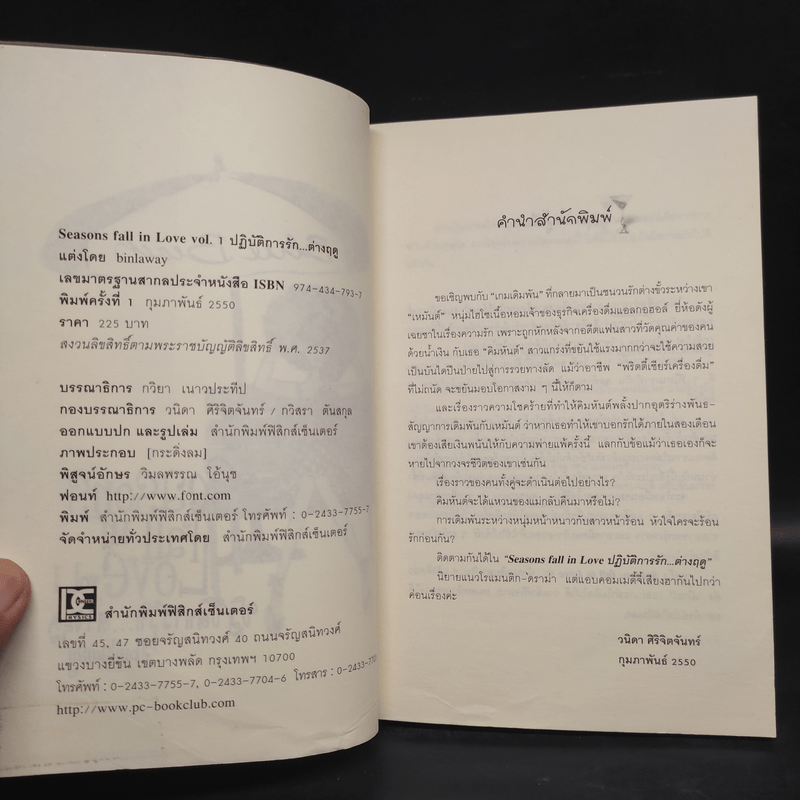 Seasons fall in Love vol. 1 ปฏิบัติการรัก...ต่างฤดู
แต่งโดย binlaway
เลขมาตรฐานสากลประจำหนังสือ ISBN 974-434-793-7
พิมพ์ครั้งที่ 1 กุมภาพันธ์ 2550
ราคา 225 บาท
สงวนลิขสิทธิ์ตามพระราชบัญญัติลิขสิทธิ์ พ.ศ. 2537
บรรณาธิการ กวิยา เนาวประทีป
กองบรรณาธิการ วนิดา ศิริจิตจันทร์ / กวิสรา ตันสกุล
ออกแบบปก และรูปเล่ม สำนักพิมพ์ฟิสิกส์เซ็นเตอร์
ภาพประกอบ [กระดิ่งลม]
พิสูจน์อักษร วิมลพรรณ โอ้นุช
ฟอนท์ http://www.f0nt.com
พิมพ์ สำนักพิมพ์ฟิสิกส์เซ็นเตอร์ โทรศัพท์ : 0-2433-7755-7
จัดจำหน่ายทั่วประเทศโดย สำนักพิมพ์ฟิสิกส์เซ็นเตอร์
สำนักพิมพ์ฟิสิกส์เซ็นเตอร์
เลขที่ 45, 47 ซอยจรัญสนิทวงศ์ 40 ถนนจรัญสนิทวงศ์
แขวงบางยี่ขัน เขตบางพลัด กรุงเทพฯ 10700
โทรศัพท์ : 0-2433-7755-7, 0-2433-7704-6 โทรสาร :
http://www.pc-bookclub.com/
คำนำสำนักพิมพ์
ขอเชิญพบกับ "เกมเดิมพัน" ที่กลายมาเป็นชนวนรักต่างขั้วระหว่างเขา
"เหมันต์" หนุ่มไฮโซเนื้อหอมเจ้าของธุรกิจเครื่องดื่มแอลกอฮอล์ ยี่ห้อดังผู้
เฉยชาในเรื่องความรัก เพราะถูกหักหลังจากอดีตแฟนสาวที่วัดคุณค่าของคน
ด้วยน้ำเงิน กับเธอ "คิมหันต์" สาวแกร่งที่ขยันใช้แรงมากกว่าจะใช้ความสวย
เป็นบันไดปีนป่ายไปสู่การรวยทางลัด แม้ว่าอาชีพ "พริตตี้เชียร์เครื่องดื่ม"
ที่ไม่ถนัด จะขยันมอบโอกาสงาม ๆ นี้ให้ก็ตาม
และเรื่องราวความโชคร้ายที่ทำให้คิมหันต์พลั้งปากอุตริร่างพันธ-
สัญญาการเดิมพันกับเหมันต์ ว่าหากเธอทำให้เขาบอกรักได้ภายในสองเดือน
เขาต้องเสียเงินพนันให้กับความพ่ายแพ้ครั้งนี้ แลกกับข้อแม้ว่าเธอเองก็จะ
หายไปจากวงจรชีวิตของเขาเช่นกัน
เรื่องราวของคนทั้งคู่จะดำเนินต่อไปอย่างไร?
คิมหันต์จะได้แหวนของแม่กลับคืนมาหรือไม่?
การเดิมพันระหว่างหนุ่มหน้าหนาวกับสาวหน้าร้อน หัวใจใครจะร้อน
รักก่อนกัน?
ติดตามกันได้ใน "Seasons fall in Love ปฏิบัติการรัก...ต่างฤดู"
นิยายแนวโรแมนติก-ดราม่า แต่แอบคอมเมดี้จี้เสียงฮากันไปกว่า
ค่อนเรื่องค่ะ
วนิดา ศิริจิตจันทร์
กุมภาพันธ์ 2550